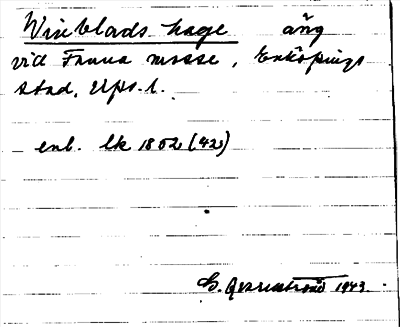 Winblads hage äng
vid Fanna mosse, Enköpings
stad, Ups. l.
enl. lk 1802 (42)
G. 1943.